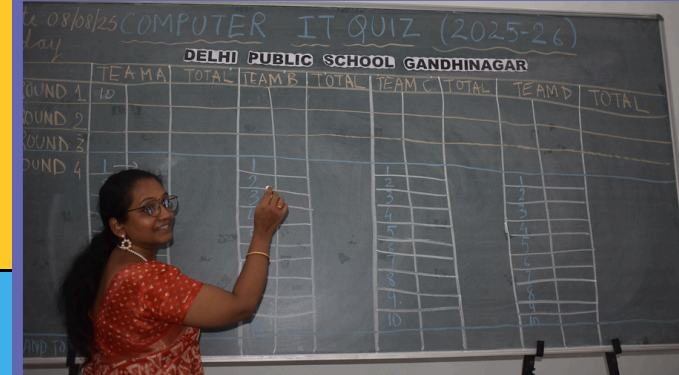 08/08/25 COMPUTER IT QUIZ (2025-26)
day
DELHI PUBLIC SCHOOL GANDHINAGAR
TEAM A TOTAL TEAM B TOTAL TEAM C TOTAL TEAM D TOTAL
ROUND 1 10
ROUND 2
ROUND 3
ROUND 4 1 1 1 1
2 2 2
3 3 3
4 4
5 5
6 6
7 7
8 8
9 9
10 10